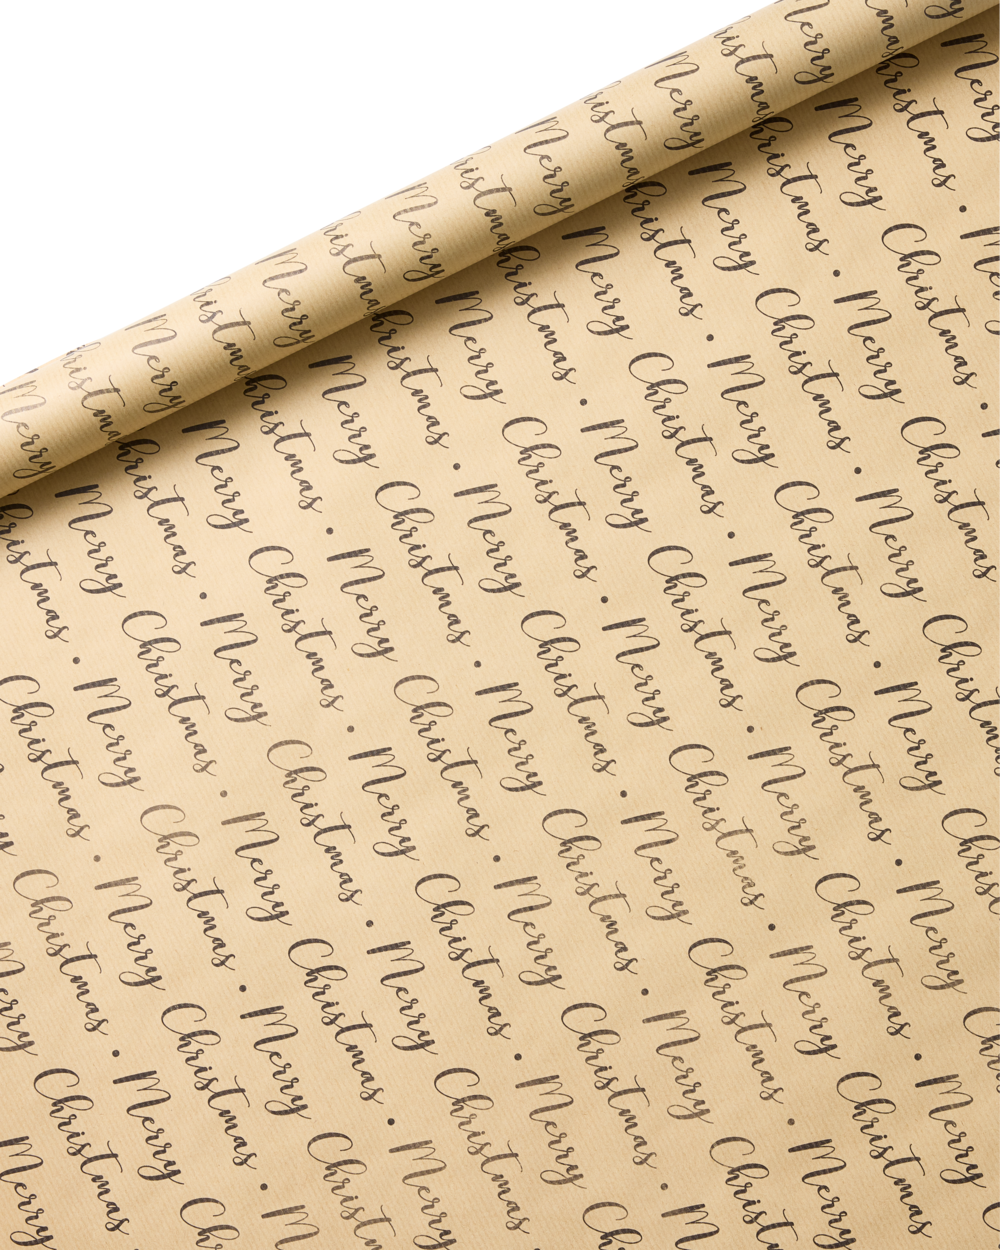 Merry Christmas • Merry Christmas • Merry Christmas
Merry Christmas • Merry Christmas • Merry Christmas
Merry Christmas • Merry Christmas • Merry Christmas
Merry Christmas • Merry Christmas • Merry Christmas
Merry Christmas • Merry Christmas • Merry Christmas
Merry Christmas • Merry Christmas • Merry Christmas
Merry Christmas • Merry Christmas • Merry Christmas